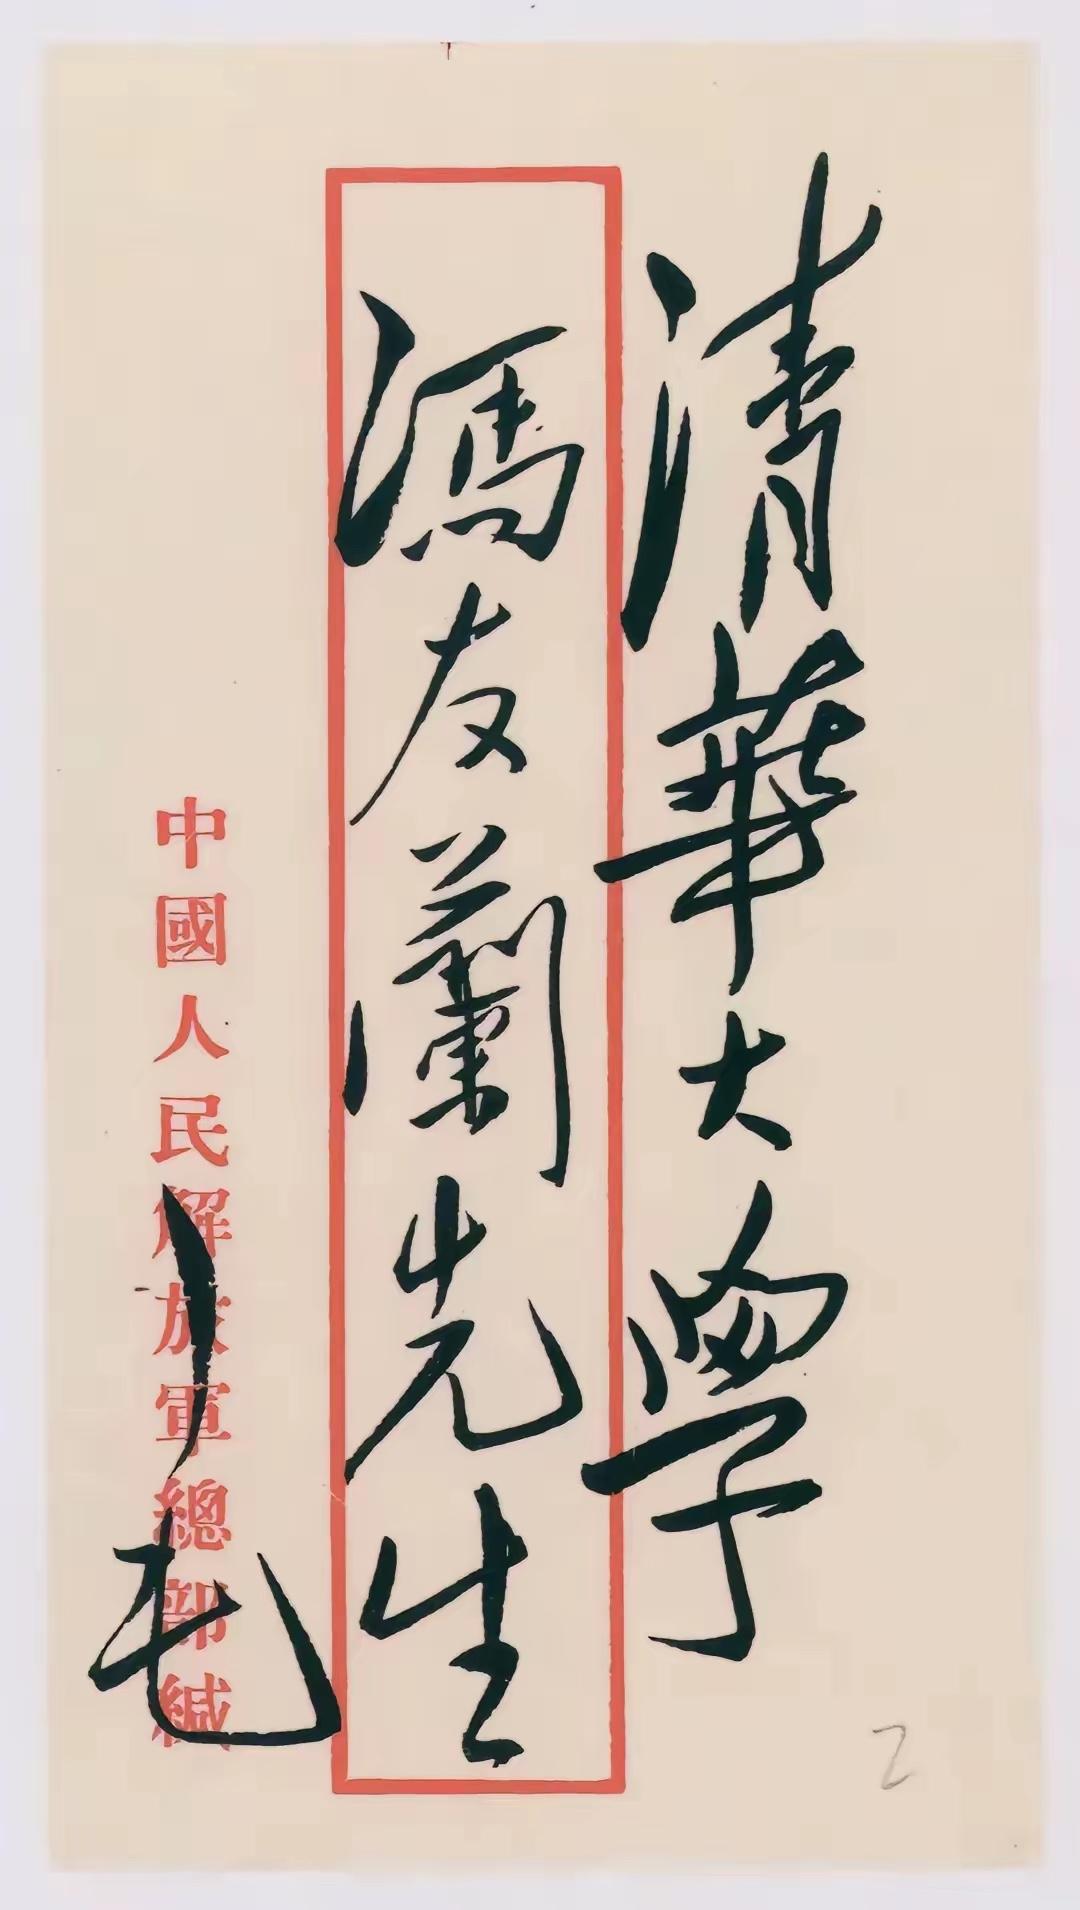 清華大學
馮友蘭先生
中國人民解放軍總部緘
毛
2